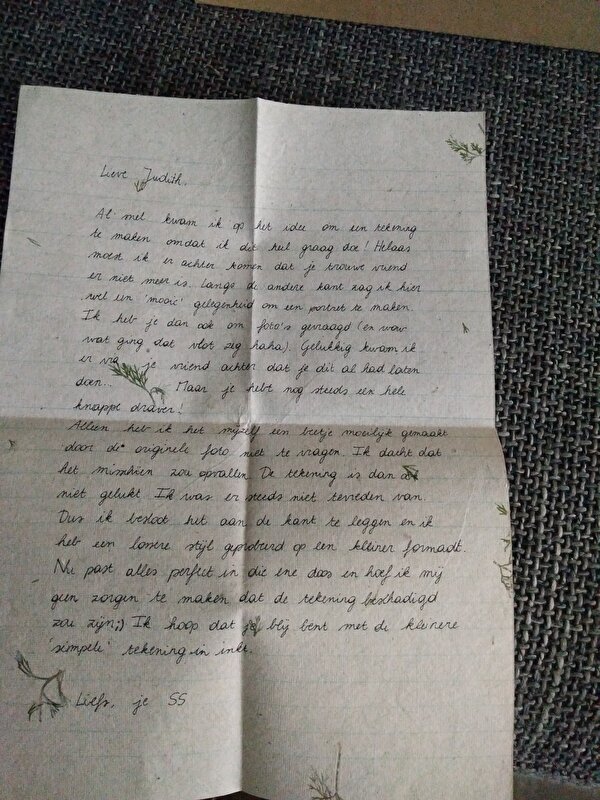 Lieve Judith,
Al snel kwam ik op het idee om een tekening
te maken omdat ik dit heel graag doe! Helaas
moest ik er achter komen dat je trouwe vriend
er niet meer is. Langs de andere kant zag ik hier
wel een 'mooie' gelegenheid om een portret te maken.
Ik heb je dan ook om foto's gevraagd (en wow
wat ging dat vlot zeg haha). Gelukkig kwam ik
er via je vriend achter dat je dit al had laten
doen... Maar je hebt nog steeds een hele
knappe draver!
Alleen heb ik het mijzelf een beetje moeilijk gemaakt
door de originele foto niet te vragen. Ik dacht dat
het misschien zou opvallen. De tekening is dan
niet gelukt. Ik was er steeds niet tevreden van.
Dus ik besloot het aan de kant te leggen en ik
heb een lossere stijl geprobeerd op een kleiner formaadt.
Nu past alles perfect in die ene doos en hoef ik mij
geen zorgen te maken dat de tekening beschadigd
zou zijn;) Ik hoop dat je blij bent met de kleinere
'simpele' tekening in inkt.
Liefs, je SS